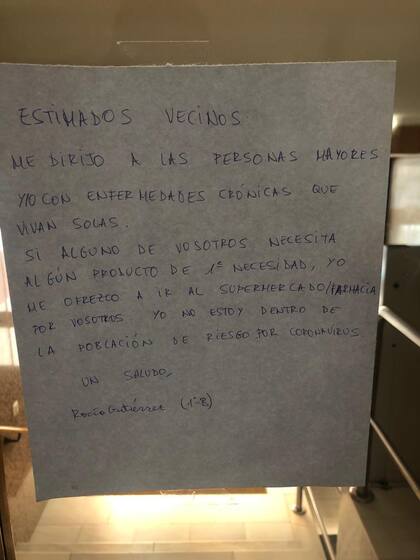 ESTIMADOS VECINOS
ME DIRIJO A LAS PERSONAS MAYORES
Y/O CON ENFERMEDADES CRÓNICAS QUE
VIVAN SOLAS.
SI ALGUNO DE VOSOTROS NECESITA
ALGÚN PRODUCTO DE 1ª NECESIDAD, YO
ME OFREZCO A IR AL SUPERMERCADO/FARMACIA
POR VOSOTROS YO NO ESTOY DENTRO DE
LA POBLACIÓN DE RIESGO POR CORONAVIRUS.
UN SALUDO,
Rocío Gutiérrez (1º-B)